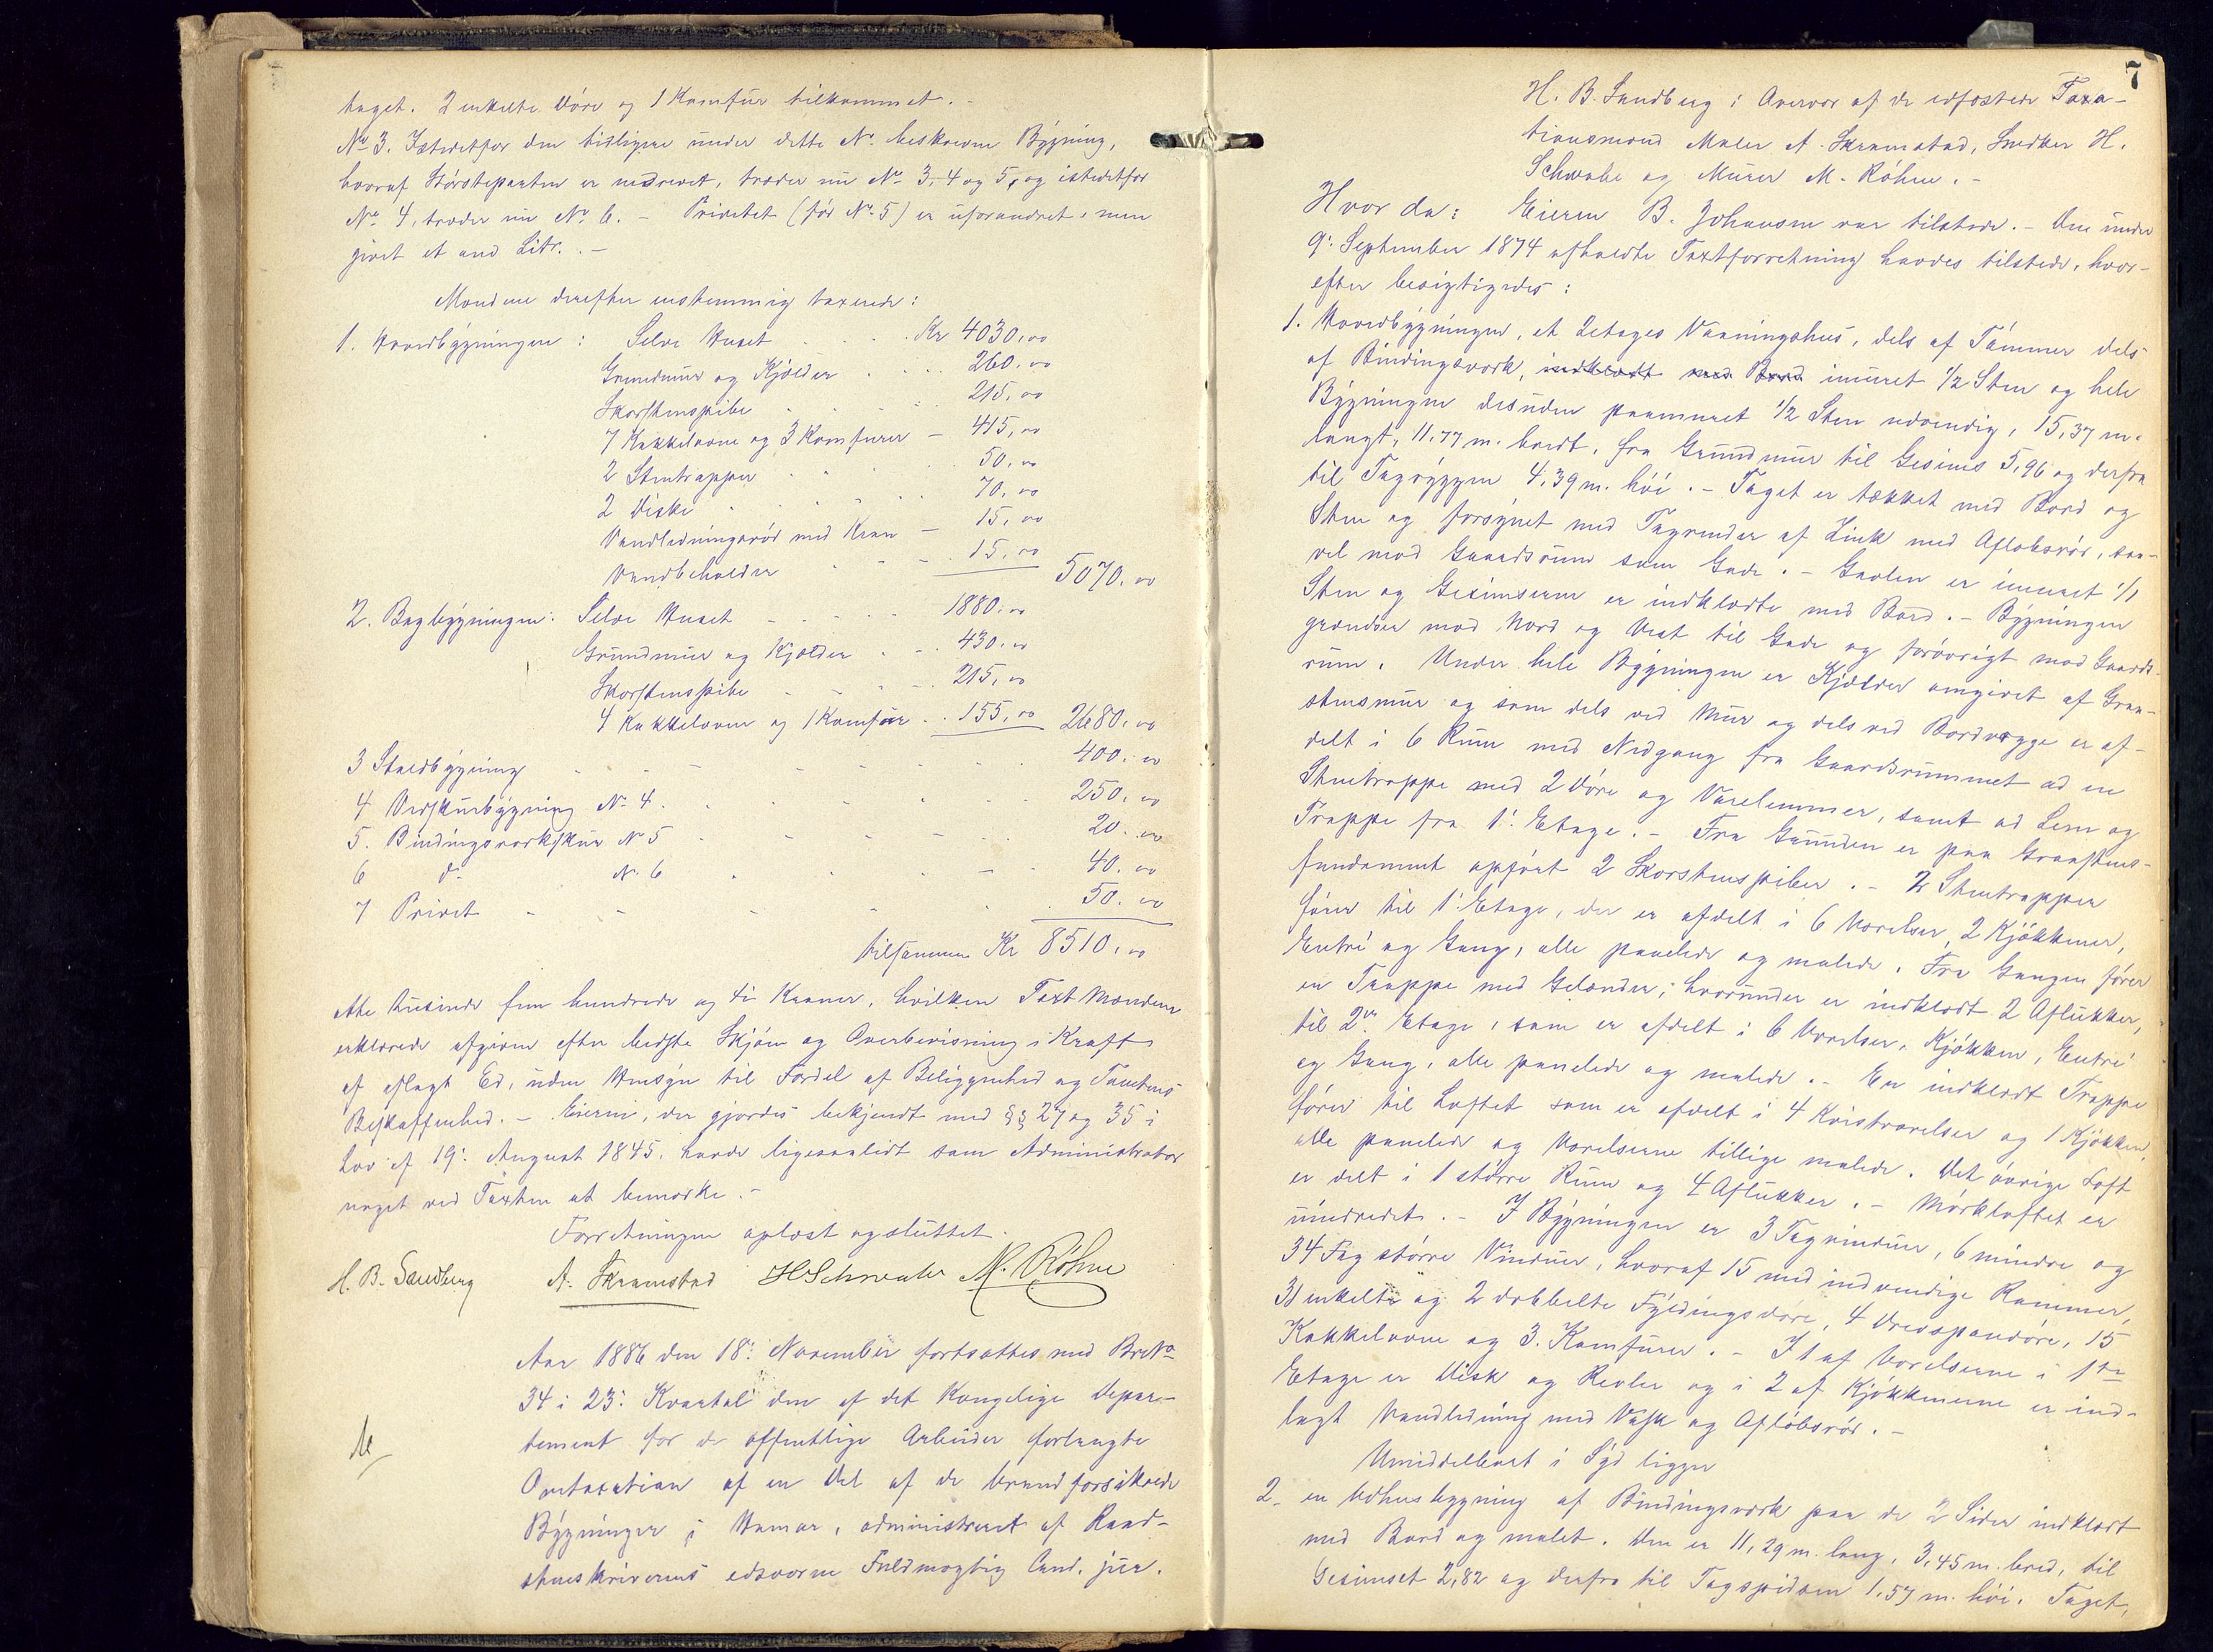 taget. 2 enkelte Döre og 1 Komfür tilkommet. -
No 3. Istedetfor den tidligere under dette No. beskrevne Bÿgning,
hvoraf Störsteparten er nedrevet, træder nu No 3, 4 og 5, og istedetfor
No 4, træder nu No 6. - Privetet (för No 5) er uforandret, men
givet et and Litr. . -
Mændene derefter enstemmig taxerede:
1. Hovedbÿgningen: Selve Huset Kr 4030,00
Grundmür og Kjælder 260,00
Skorstenspibe 215,00
7 Kakkelovne og 3 Komfurer - 415,00
2 Stentrapper 50,00
2 Diske 70,00
Vandledningsrör med Kran - 15,00
Vandbeholder 15,00 5070,00
2. Bagbÿgningen: Selve Huset 1880,00
Grundmür og Kjælder 430,00
Skorstenspibe 215,00
4 Kakkelovne og 1 Komfür 155,00 2680,00
3 Staldbÿgning 400,00
4 Vedskürbÿgning No 4. 250,00
5. Bindingsværkskür No 5 20,00
6 do No 6 40,00
7 Privet 50,00
tilsammen Kr 8510,00
otte tusinde fem hundrede og ti Kroner, hvilken Taxt Mændene
erklærede afgiven efter bedste Skjön og Overbevisning i Kraft
af aflagt Ed, uden Hensÿn til Fordel af Beliggenhed og Tomtens
Beskaffenhed. - Eieren, der gjordes bekjendt med §§ 27 og 35 i
Lov af 19: August 1845, havde ligesaalidt som Administrator
noget ved Taxten at bemærke. -
Forretningen oplæst og sluttet.
H. B. Sandberg A. Skramstad HSchwabe M. Röhne
Aar 1886 den 18: November fortsattes med BrNo
34 i 23: Kvartal den af det Kongelige Depar-
tement for de offentlige Arbeider forlangte
Omtaxation af en Del af de brandforsikrede
Bÿgninger i Hamar, administreret af Raad-
stueskriverens edsvorne Fuldmægtig Cand. jur.
7
H. B. Sandberg i Overvær af de edfæstede Taxa-
tionsmænd Maler A. Skramstad, Snedker H.
Schwabe og Mürer M. Röhne. -
Hvor da: Eieren B. Johansen var tilstede. - Den under
9: September 1874 afholdte Taxtforretning havdes tilstede, hvor-
efter besigtigedes:
1. Hovedbÿgningen, et 2etages Vaaningshüs, dels af Tömmer dels
af Bindingsværk, indklædt med Bord imüret 1/2 Sten og hele
Bÿgningen desuden paamuret 1/2 Sten udvendig, 15,37 m.
langt, 11,77 m. bredt, fra Grundmür til Gesims 5,96 og derfra
til Tagrÿggen 4,39 m. höi. - Taget er tækket med Bord og
Sten og forsÿnet med Tagrender af Zink med Aflöbsrör, saa-
vel mod Gaardsrüm som Gade. - Gavlen er imuret 1/1
Sten og Gesimserne er indklædte med Bord. - Bÿgningen
grændser mod Nord og Vest til Gade og forövrigt mod Gaards-
rüm. Under hele Bÿgningen er Kjælder omgivet af Graa-
stensmür og som dels ved Mür og dels ved Bordvægge er af-
delt i 6 Rüm med Nedgang fra Gaardsrümmet ad en
Stentrappe med 2 Döre og Vareslemmer, samt ad Lem og
Trappe fra 1: Etage. - Fra Grunden er paa Graastens-
fundament opfört 2 Skorstenspiber. - 2 Stentrapper
förer til 1: Etage, der er afdelt i 6 Værelser, 2 Kjökkener,
Entré og Gang, alle panelede og malede. Fra Gangen förer
en Trappe med Gelænder; hvorunder er indklædt 2 Aflukker,
til 2den Etage, som er afdelt i 6 Værelser, Kjökken, Entré
og Gang, alle panelede og malede. - En indklædt Trappe
förer til Loftet som er afdelt i 4 Kvistværelser og 1 Kjökken,
alle panelede og Værelserne tillige malede. Det övrige Loft
er delt i 1 större Rüm og 4 Aflukker. - Mörkloftet er
uindredet. - I Bÿgningen er 3 Tagvinduer, 6 mindre og
34 Fag större Vinduer, hvoraf 15 med indvendige Rammer,
31 enkelte og 2 dobbelte Fÿldingsdöre, 4 Vredspandöre, 15
Kakkelovne og 3 Komfürer. - I 1 af Værelserne i 1ste
Etage er Disk og Reoler og i 2 af Kjökkenerne er ind-
lagt Vandledning med Vask og Aflöbsrör. -
Umiddelbart i Sÿd ligger
2. en Udhusbygning af Bindingsværk paa de 2 Sider indklædt
med Bord og malet. Den er 11,29 m. lang, 3,45 m. bred, til
Gesimset 2,82 og derfra til Tagspidsen 1,57 m. höi. Taget,